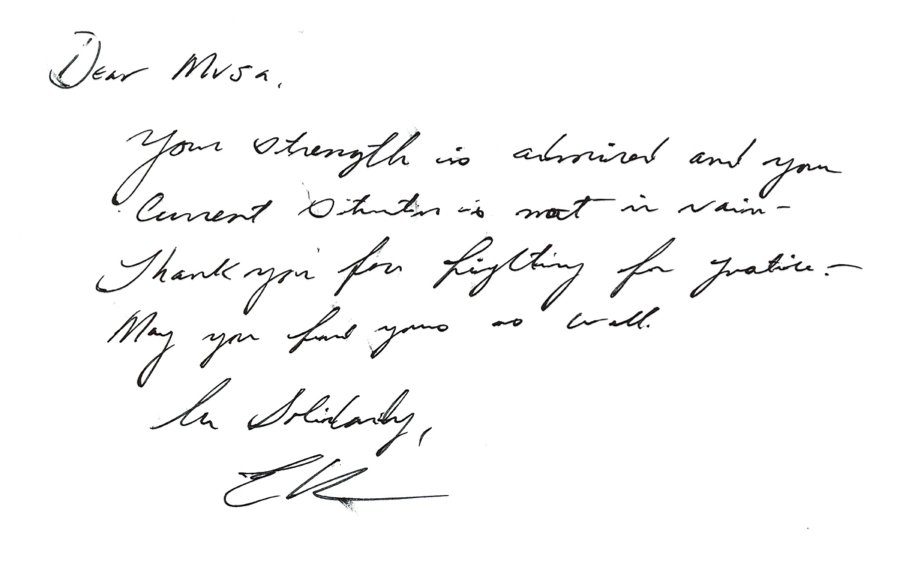 Dear Musa,
Your strength is admired and your
Current situation is not in vain -
Thank you for fighting for justice. -
May you find yours as well.
In Solidarity,